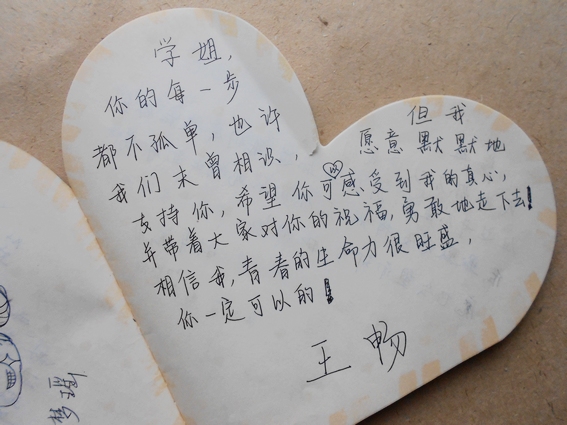 学姐，
你的每一步
都不孤单，也许
我们未曾相识，
但我
愿意默默地
支持你，希望你可以感受到我的真心，
并带着大家对你的祝福，勇敢地走下去！
相信我，青春的生命力很旺盛，
你一定可以的！
王畅